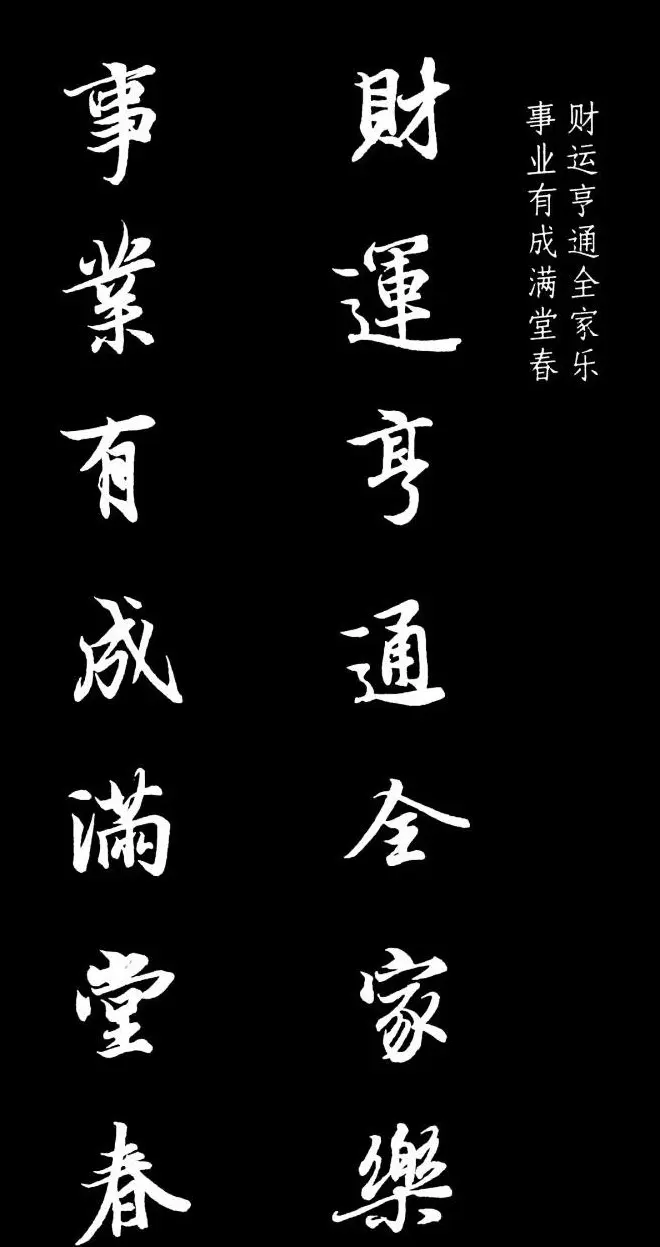 财运亨通全家乐
事业有成满堂春
財運亨通全家樂
事業有成滿堂春